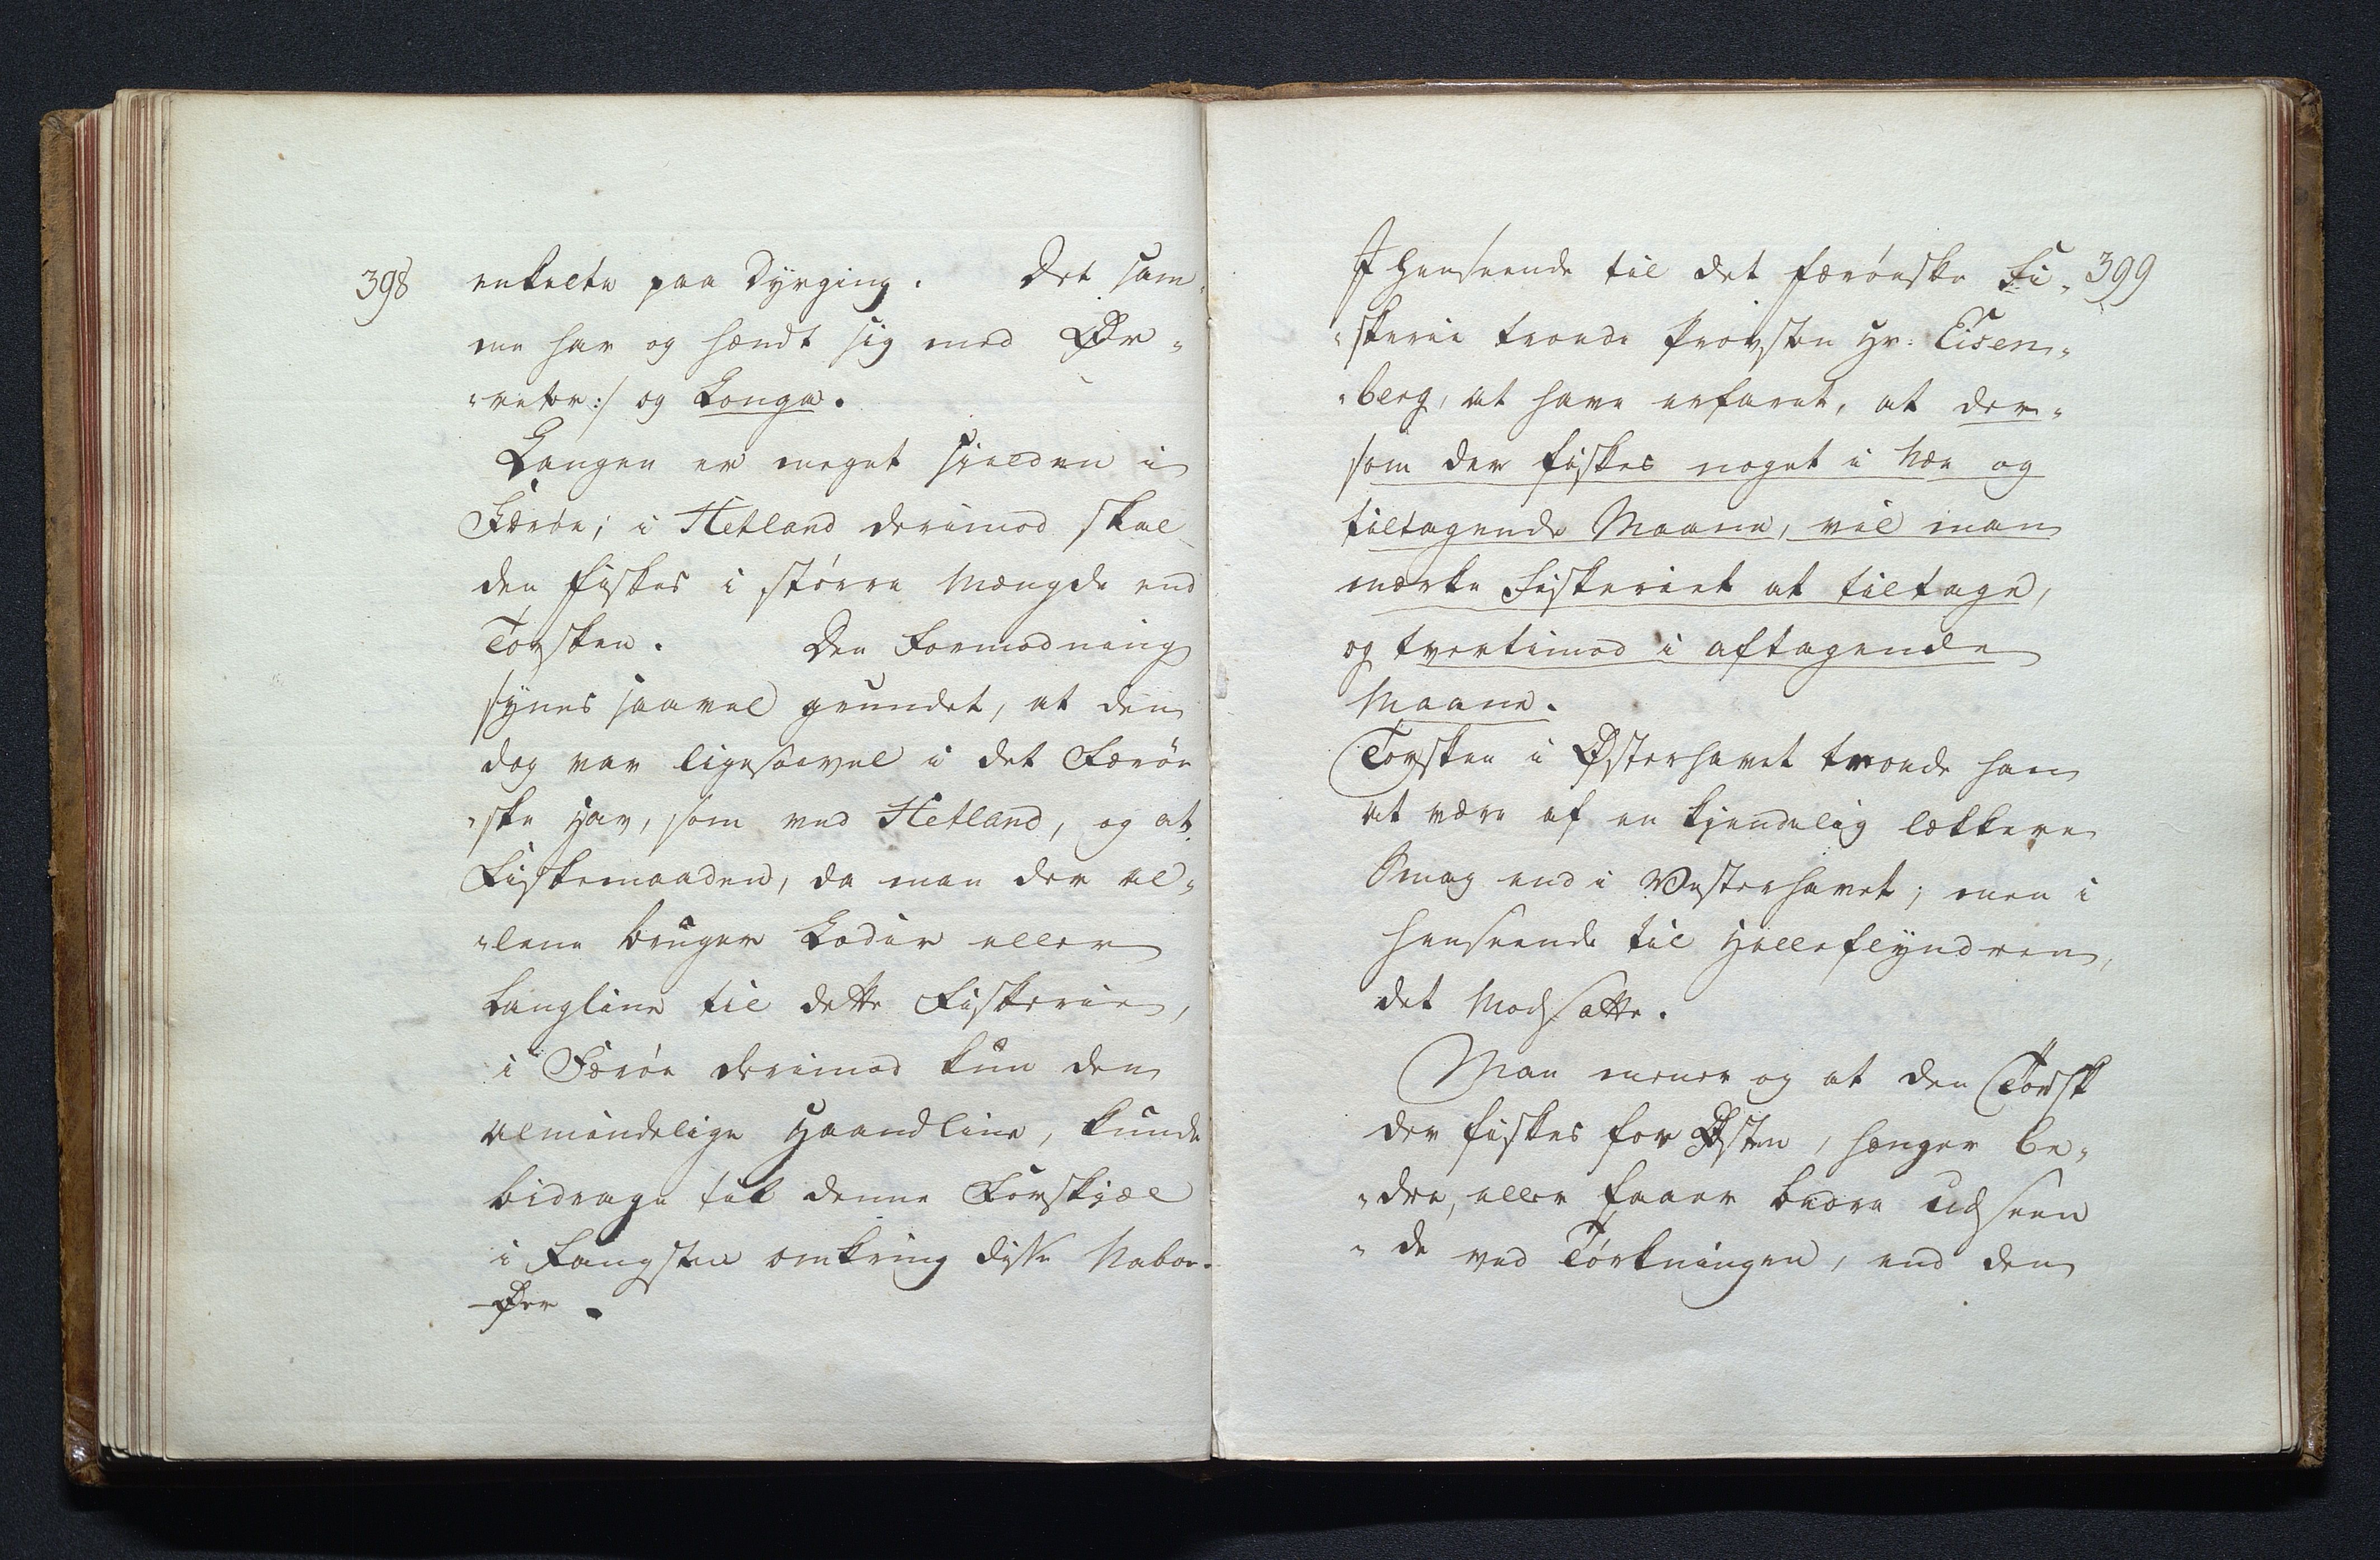 398
enkelte paa Dyrging. Det sam-
me har og hændt sig med Ør-
-reter :/ og Longa.
Langen er meget sielden i
Færöe; i Hetland derimod skal
den fiskes i större Mængde end
Torsken. Den Formodning
synes saavel grundet, at den
dog var ligesaavel i det Færöe
-ske Hav, som ved Hetland, og at
Fiskemaaden, da man der al-
-lene bruger Lodir eller
Langline til dette Fiskerie,
i Færöe derimod kun den
almindelige Haandline, kunde
bidrage til denne Forskjæl
i Fangsten omkring disse Naboe-
-Øer.
399
I Henseende til det færöeske Fi-
-skerie troede Provsten Hr: Eisen-
-berg, at have erfaret, at der-
som der fiskes noget i Næe og
tiltagende Maane, vil man
mærke Fiskeriet at tiltage,
og tvertimod i aftagende
Maane.
Torsken i Østerhavet troede han
at være af en kjendelig lækkere
Smag end i Vesterhavet; men i
Henseende til Hellefleyndren,
det Modsatte.
Man mener og at den Torsk
der fiskes for Østen, hænger be-
-dre, eller faaer bedre Udseen
-de ved Törkningen, end den